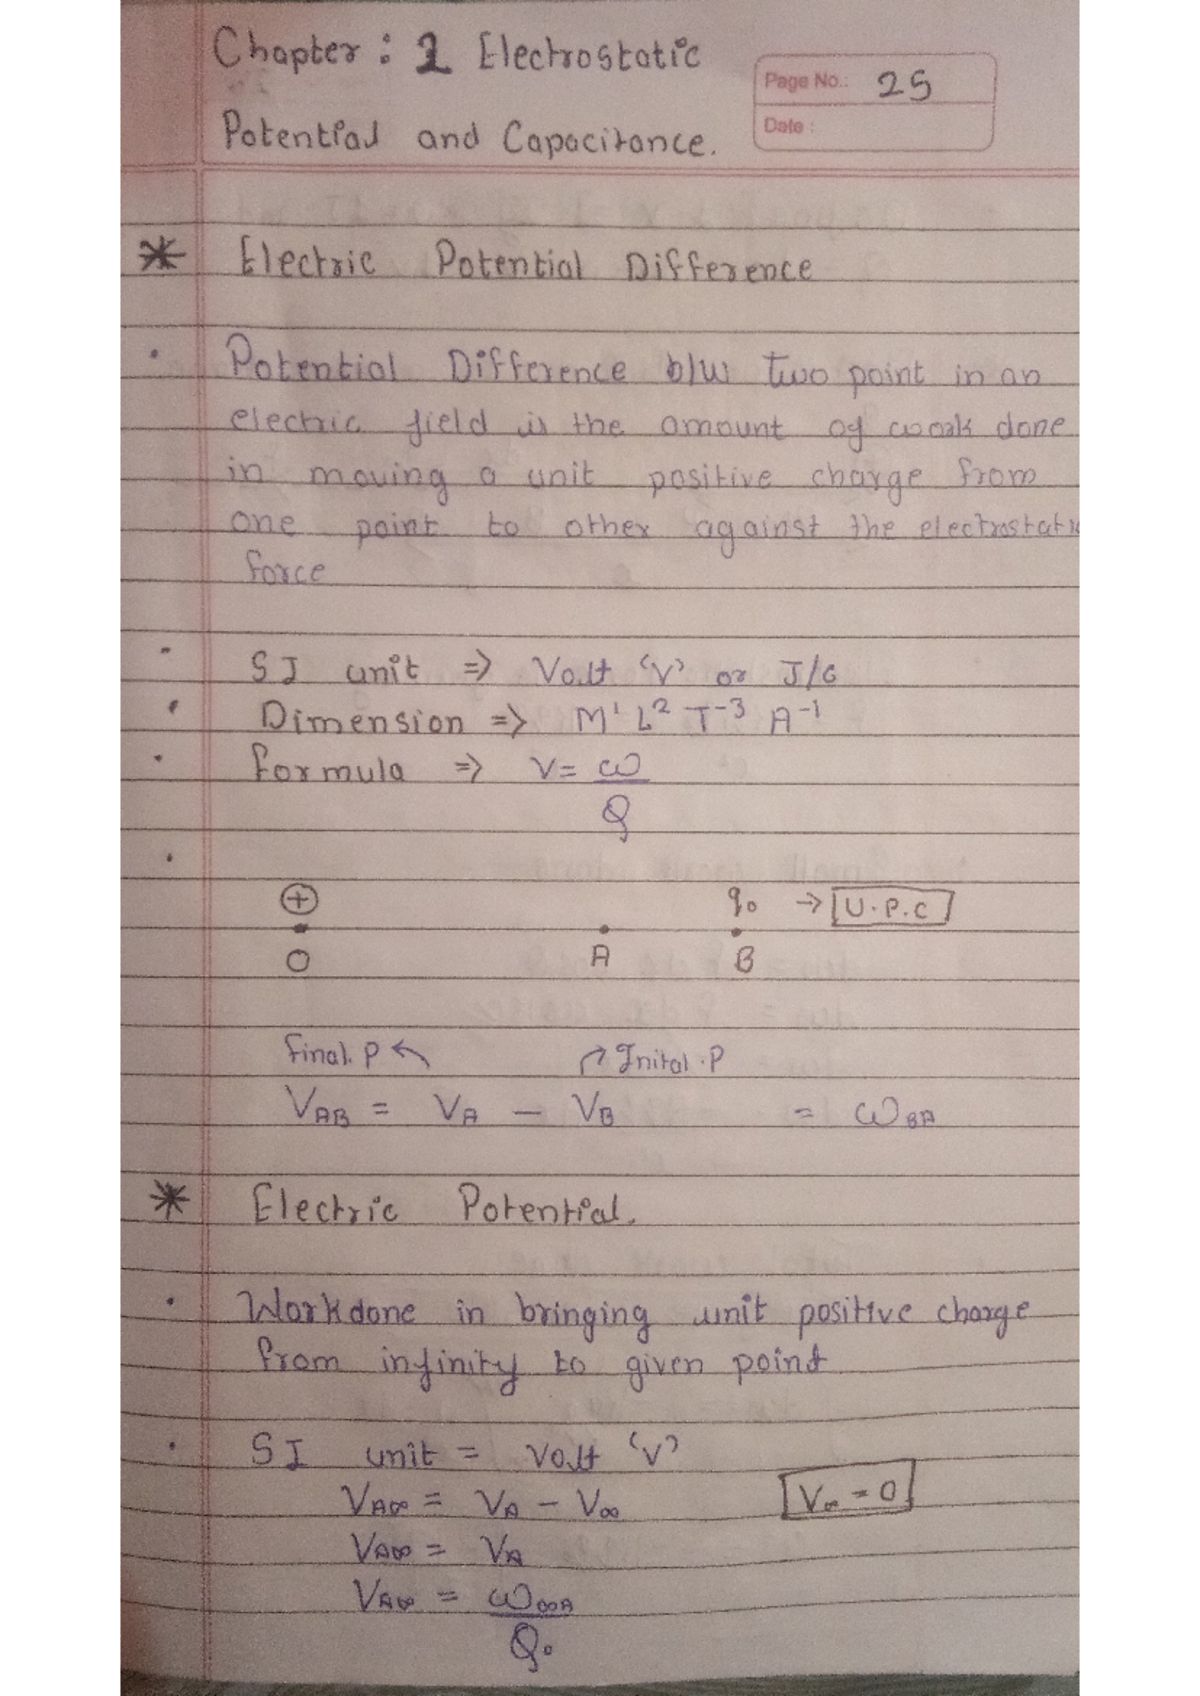 Chapter : 2 Electrostatic
Page No.: 25
Potential and Capacitance.
Date :
* Electric Potential Difference
• Potential Difference b/w two point in an
electric field is the amount of work done
in moving a unit positive charge from
one point to other against the electrostatic
force
• SI unit ⇒ Volt 'V' or J/C
• Dimension ⇒ M¹ L² T⁻³ A⁻¹
• formula ⇒ V = ω
Q
•
⊕ q₀ → U.P.C
O A B
final. P ↖ ↗ Inital . P
V_AB = V_A – V_B = ω_BA
* Electric Potential.
• Workdone in bringing unit positive charge
from infinity to given point
• SI unit = Volt 'V'
V_A∞ = V_A – V_∞ V_∞ = 0
V_A∞ = V_A
V_A∞ = ω_∞A
Q₀